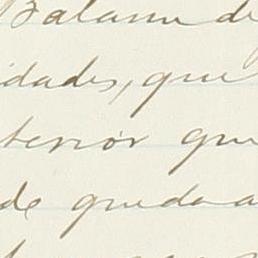 Balanu de
idades, que
terior que
de queda a